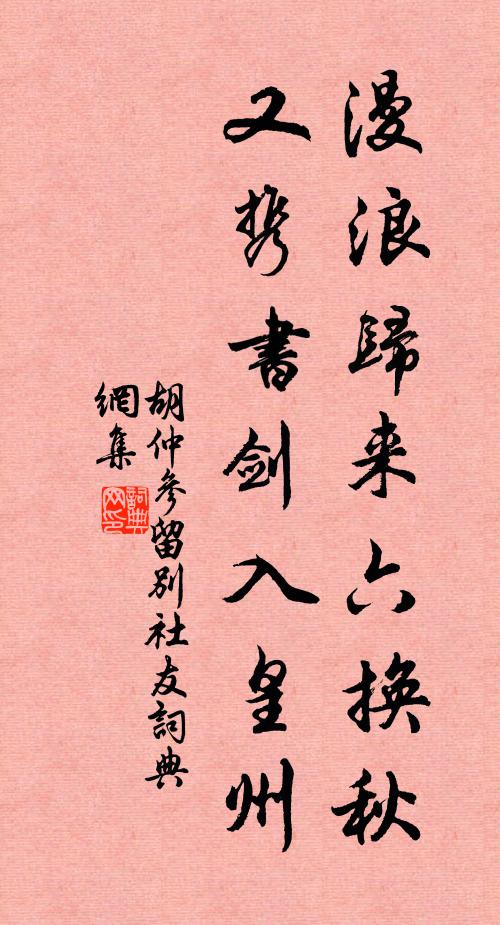 漫浪歸来六換秋
又携書劍入皇州
胡仲參留別社友詞典
網集
詞典
网印